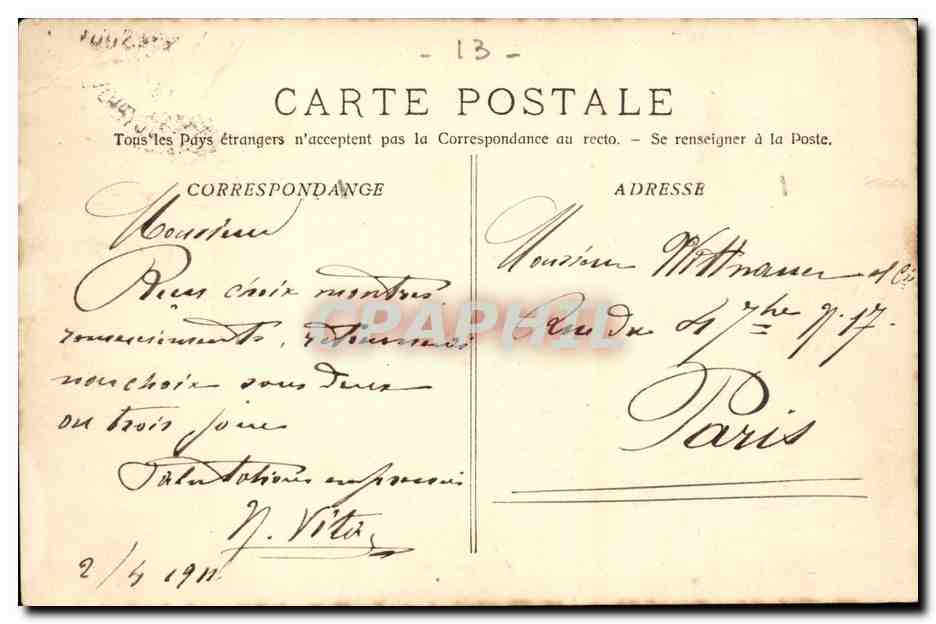 - 13 -
CARTE POSTALE
Tous les Pays étrangers n'acceptent pas la Correspondance au recto. - Se renseigner à la Poste.
CORRESPONDANCE
Monsieur
Reçu choix montres
remerciements, retournerai
non choix sous deux
ou trois jours
Salutations empressées
N. Vita
2/4 1911
ADRESSE
Monsieur Wittnauer et Cie
Rue du 4 7bre N. 17.
Paris
CPAPHIL